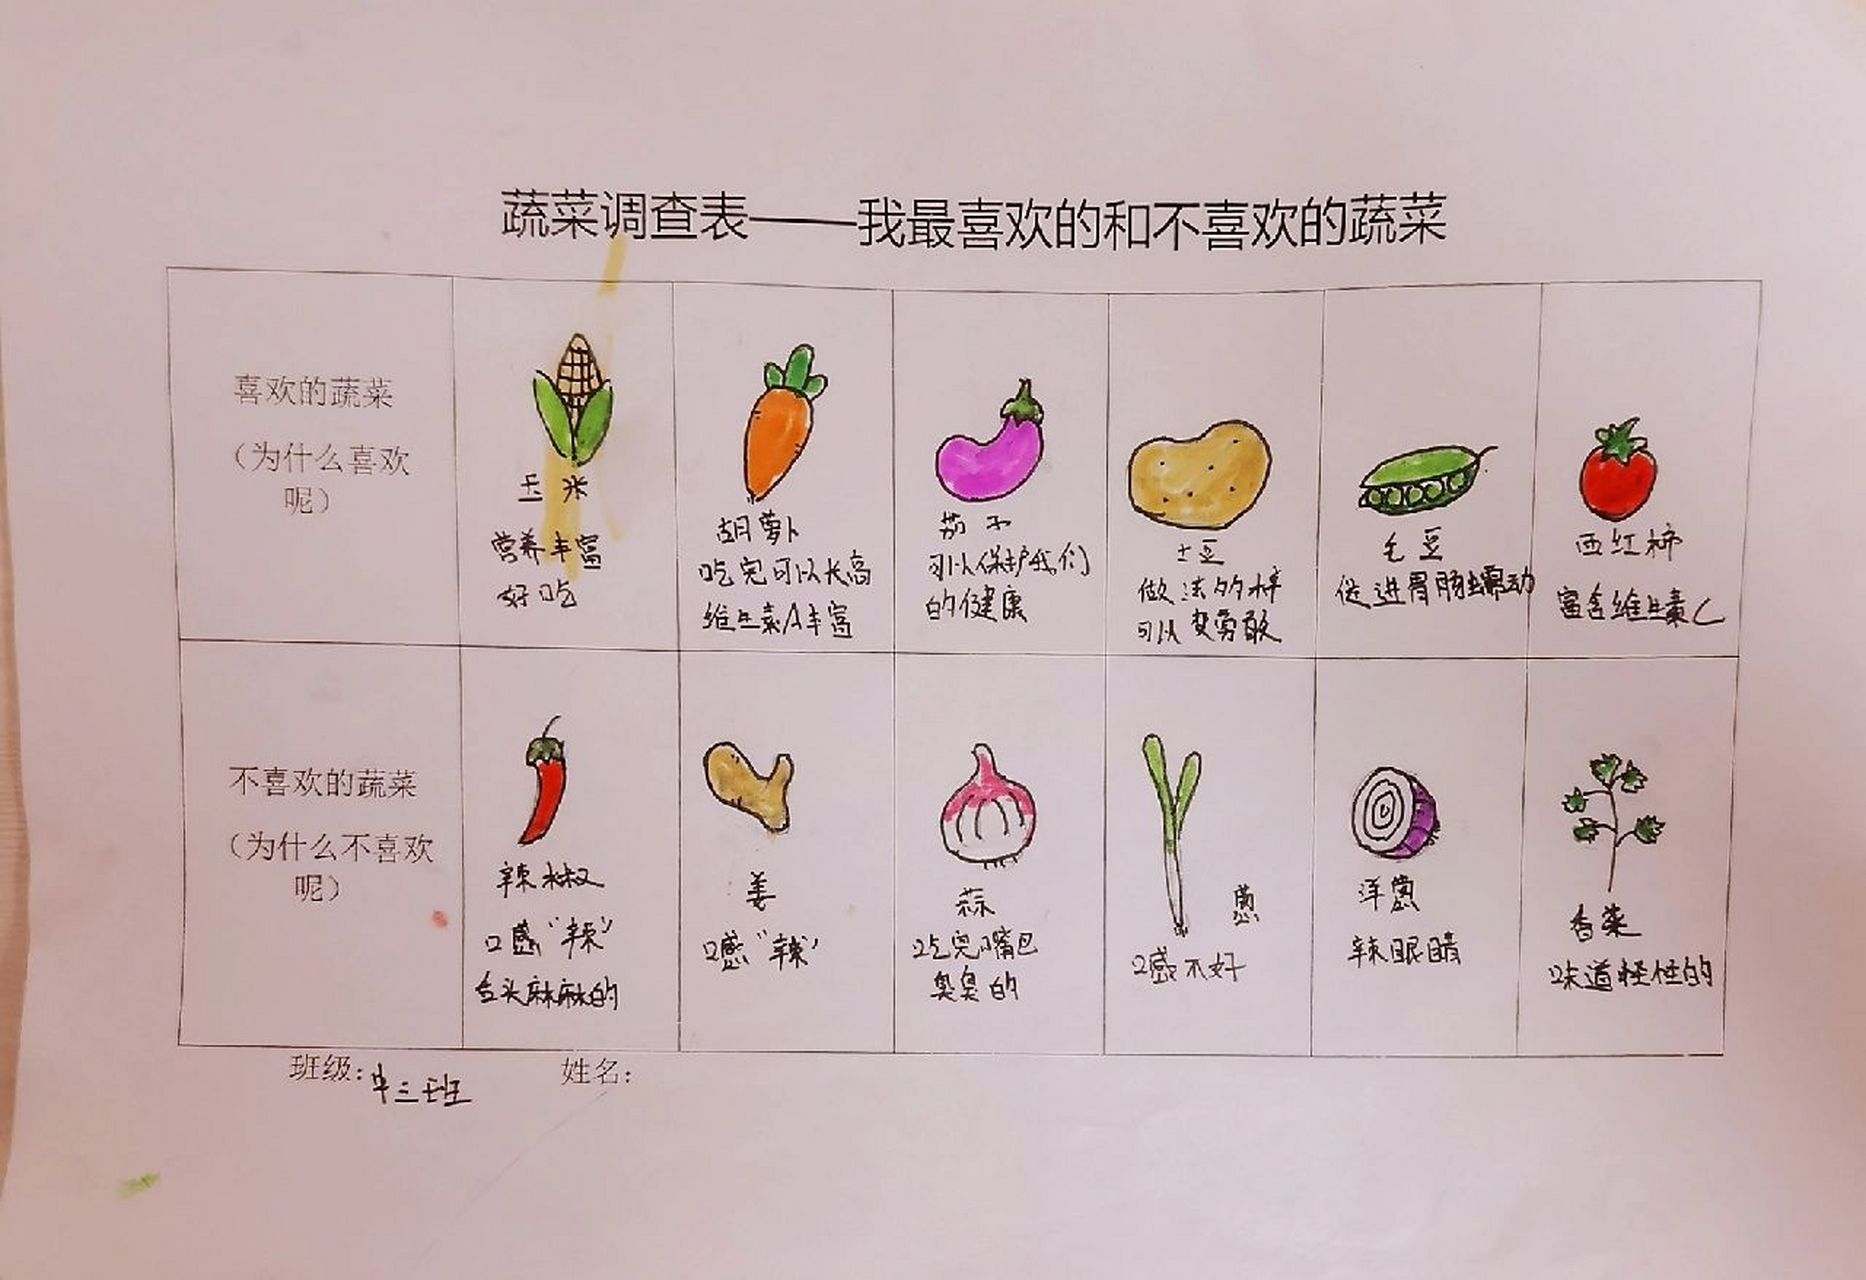 蔬菜调查表——我最喜欢的和不喜欢的蔬菜
喜欢的蔬菜
（为什么喜欢
呢）
玉米
营养丰富
好吃
胡萝卜
吃完可以长高
维生素A丰富
茄子
可以保护我们
的健康
土豆
做法多样
可以变勇敢
毛豆
促进胃肠蠕动
西红柿
富含维生素C
不喜欢的蔬菜
（为什么不喜欢
呢）
辣椒
口感“辣”
舌头麻麻的
姜
口感“辣”
蒜
吃完嘴巴
臭臭的
葱
口感不好
洋葱
辣眼睛
香菜
味道怪怪的
班级：中三班
姓名：